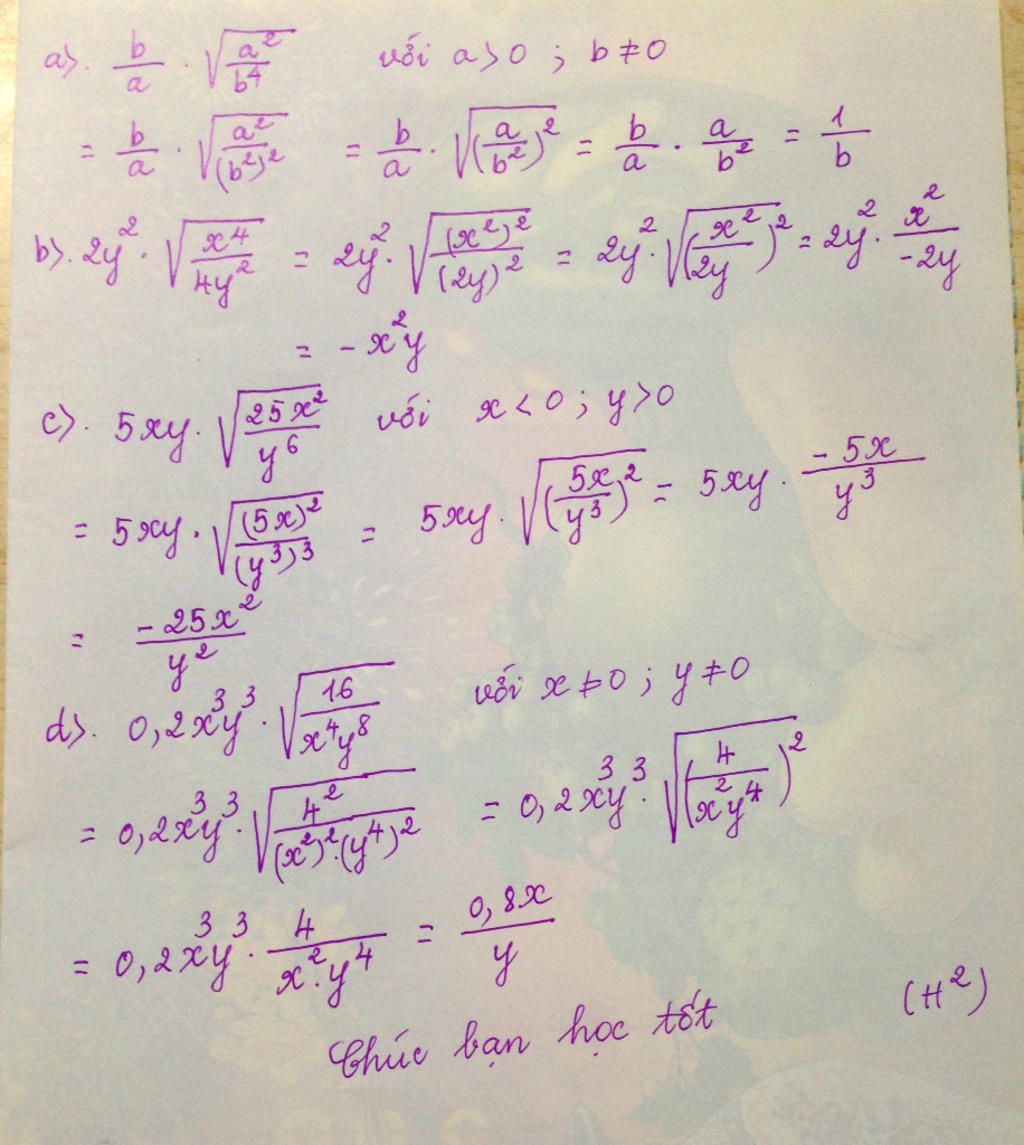 a>. b/a . √(a²/b⁴) với a > 0 ; b ≠ 0
= b/a . √(a²/(b²)²) = b/a . √((a/b²)²) = b/a . a/b² = 1/b
b>. 2y² . √(x⁴/4y²) = 2y² . √((x²)²/(2y)²) = 2y² . √((x²/2y)²) = 2y² . x²/-2y
= - x²y
c>. 5xy . √(25x²/y⁶) với x < 0 ; y > 0
= 5xy . √((5x)²/(y³)³) = 5xy . √((5x/y³)²) = 5xy . -5x/y³
= -25x²/y²
d>. 0,2x³y³ . √(16/x⁴y⁸) với x ≠ 0 ; y ≠ 0
= 0,2x³y³ . √(4²/(x²)².(y⁴)²) = 0,2x³y³ . √((4/x²y⁴)²)
= 0,2x³y³ . 4/x².y⁴ = 0,8x/y
Chúc bạn học tốt (H²)